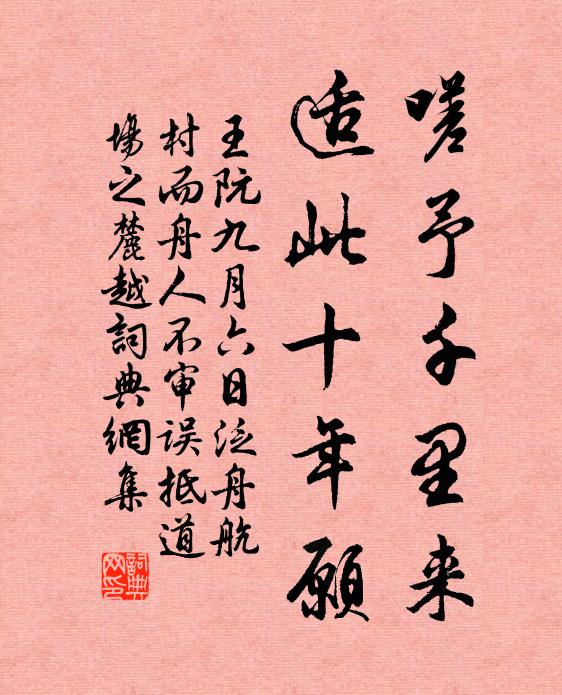 嗟予千里来
适此十年愿
王阮九月六日泛舟航
村而舟人不审误抵道
場之麓越詞典網集
詞典
网印